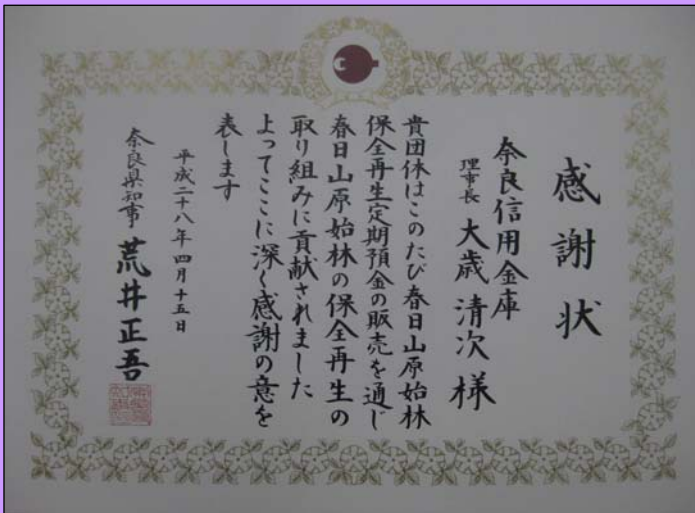 感謝状
奈良信用金庫
理事長 大歳清次様
貴団体はこのたび春日山原始林
保全再生定期預金の販売を通じ
春日山原始林の保全再生の
取り組みに貢献されました
よってここに深く感謝の意を
表します
平成二十八年四月十五日
奈良県知事 荒井正吾